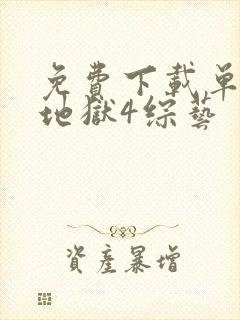 免費下載單
地獄4綜藝
資產暴增